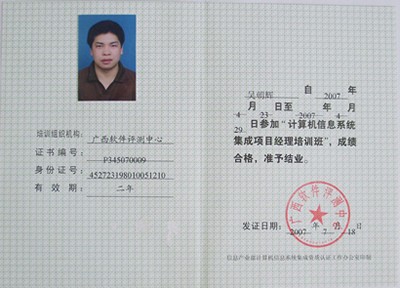 培训组织机构: 广西软件评测中心
证书编号: P345070009
身份证号: 452723198010051210
有效期: 二年
吴昭辉 自 2007 年
4 月 23 日至 2007 年 4 月
29 日参加“计算机信息系统
集成项目经理培训班”,成绩
合格,准予结业。
广西软件评测中心
发证日期: 2007 年 7 月 18 日
信息产业部计算机信息系统集成资质认证工作办公室印制